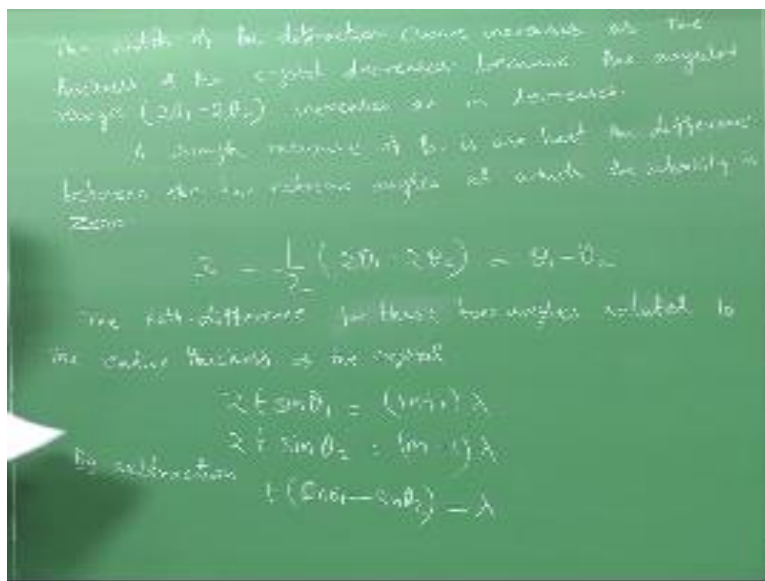 The width of the diffraction curve increases as the
thickness of the crystal decreases because the angular
range (2θ₁-2θ₂) increases as m decreases.
measure of B is one half the difference
between the two extreme angles at which the intensity is
Zero
B = 1/2 (2θ₁ - 2θ₂) = θ₁-θ₂
The path-difference for these two angles related to
the entire thickness of the crystal
2t sinθ₁ = (m+1) λ
2t sinθ₂ = (m-1) λ
By subtraction
t(sinθ₁ - sinθ₂) = λ